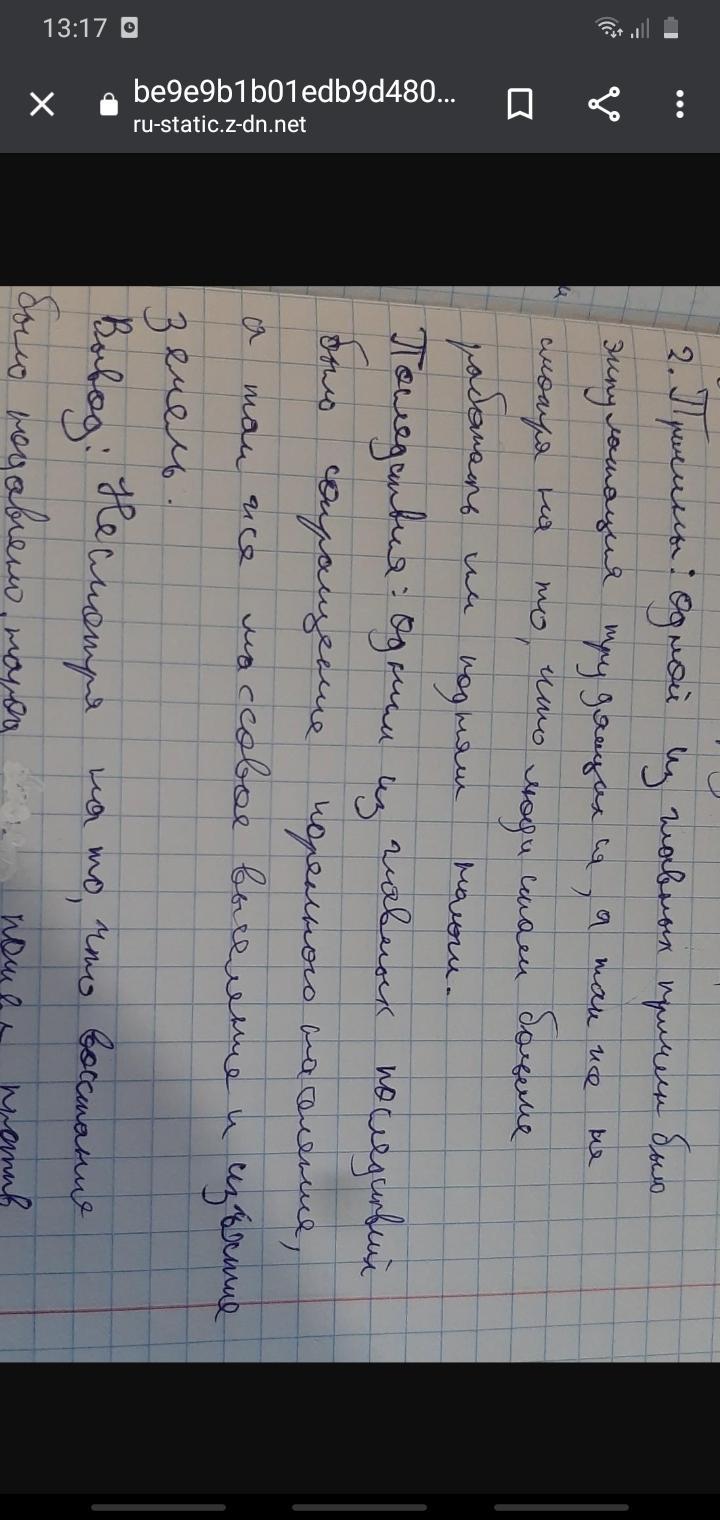 13:17
be9e9b1b01edb9d480...
ru-static.z-dn.net
2. Причины: Одной из главных причин было
эксплуатация трудящихся, а так же не
смотря на то, что люди стали больше
работать им подняли налоги.
Последствия: Одним из главных последствий
было сокращение коренного населения,
а так же массовое выселение и изъятие
Земель.
Вывод: Несмотря на то, что восстания
было подавлено, народ пошел против